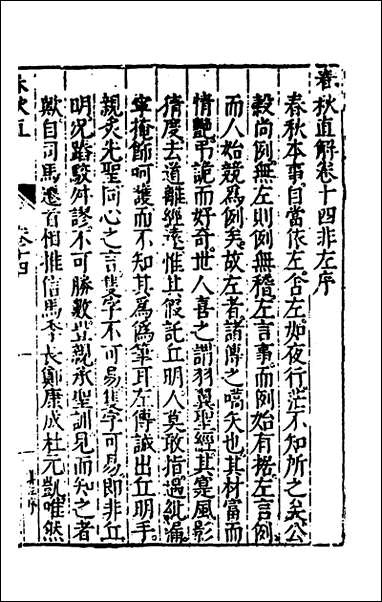 春秋直解卷十四非左序
春秋本事自當依左舍左如夜行茫不知所之矣公
穀尚例無左則例無稽左言事而例始有據左言例
而人始競為例矣故左者諸傳之嚆矢也其材富而
情艷弔詭而好奇世人喜之謂羽翼聖經其寔風影
猜度去道離經遠惟其假託丘明人莫敢指過紕漏
寧掩飾呵護而不知其為偽筆耳左傳誠出丘明手
親炙先聖同心之言隻字不可易隻字可易即非丘
明况踳駁舛謬不可勝數豈親承聖訓見而知之者
歟自司馬遷首相推信馬季長鄭康成杜元凱唯然
春秋直 卷十四 一